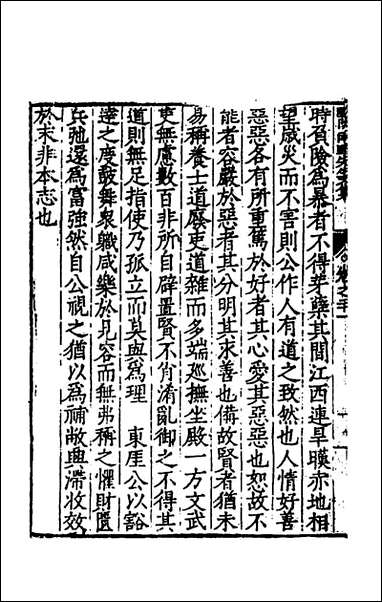 時負險爲暴者不得芽櫱其間江西連旱暵赤地相
望咸災而不害則公作人有道之致然也人情好善
惡惡各有所重篤於好者其心愛其惡惡也恕故不
能者容嚴於惡者其分明其求善也備故賢者猶未
易稱養士道廢吏道雜而多端廵撫坐殿一方文武
吏無慮數百非所自辟置賢不肖淆亂御之不得其
道則無足指使乃孤立而莫與爲理　東厓公以豁
達之度鼓舞衆職咸樂於見容而無弗稱之懼財匱
兵弛還爲富強然自公視之猶以爲補敝與滯收效
於末非本志也
卷之